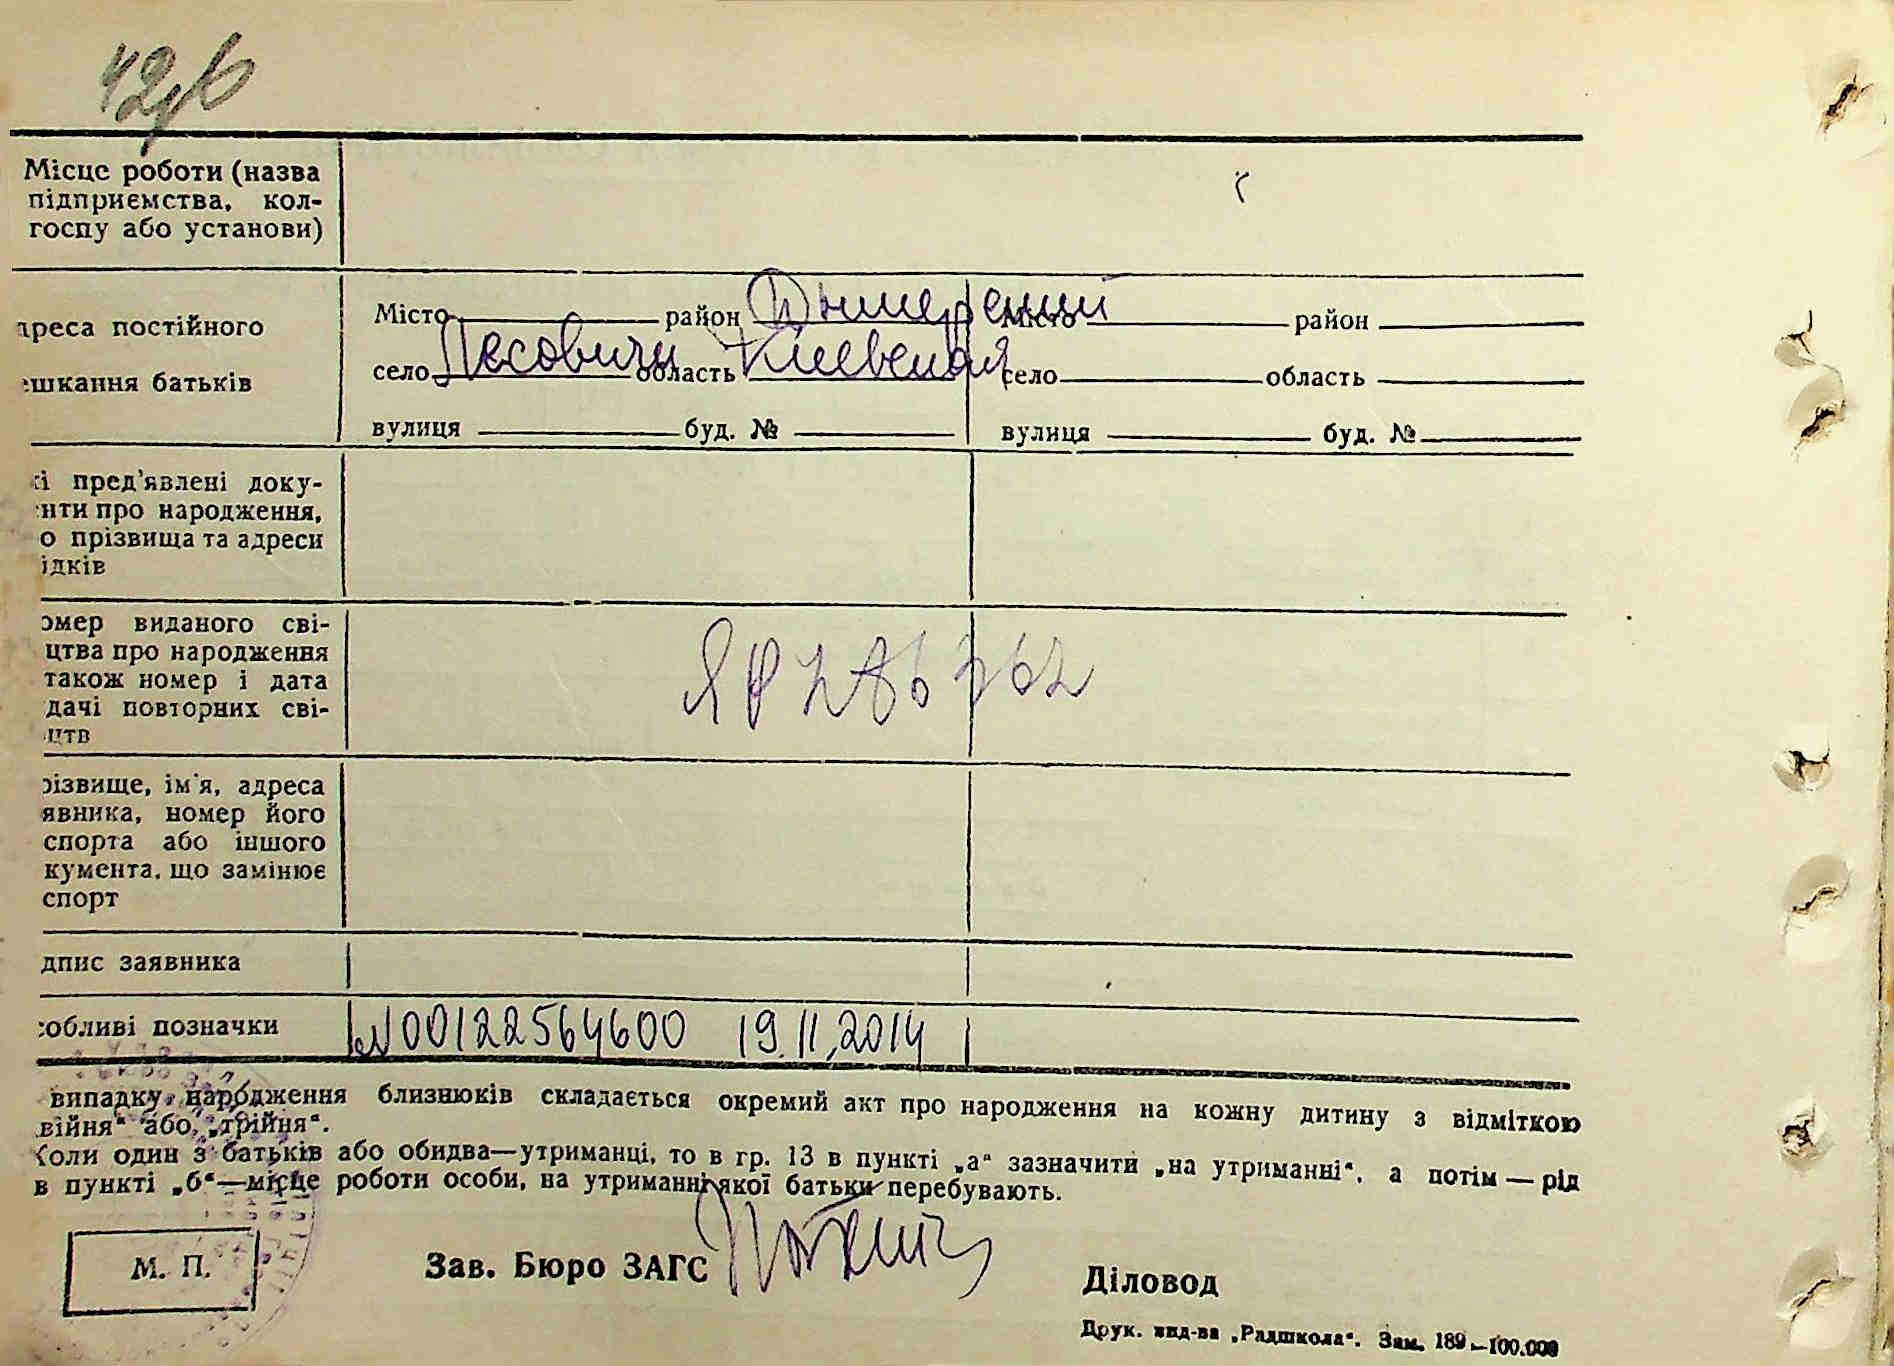 Місце роботи (назва
підприємства, кол-
госпу або установи)
дреса постійного
ешкання батьків
Місто район Дымерський Місто район
село Лесовичи область Киевская село область
вулиця буд. № вулиця буд. №
і пред'явлені доку-
нти про народження,
о прізвища та адреси
ідків
омер виданого сві-
цтва про народження
також номер і дата
дачі повторних сві-
цтв
різвище, ім'я, адреса
явника, номер його
спорта або іншого
кумента, що замінює
спорт
дпис заявника
собливі позначки
N 00122564600 19.11.2014
випадку народження близнюків складається окремий акт про народження на кожну дитину з відміткою
війня“ або „трійня“.
Коли один з батьків або обидва—утриманці, то в гр. 13 в пункті „а“ зазначити „на утриманні“, а потім — рід
в пункті „б“—місце роботи особи, на утриманні якої батьки перебувають.
М. П.
Зав. Бюро ЗАГС
Діловод
Друк. вид-ва „Радшкола“. Зам. 189—100.000